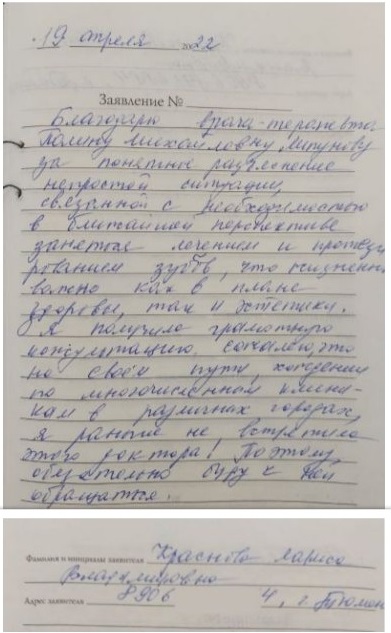 19 апреля 2022
Заявление №
Благодарю врача-терапевта
Полину Михайловну Липунову
за понятное разъяснение
непростой ситуации,
связанной с необходимостью
в ближайшей перспективе
заняться лечением и протези
рованием зубов, что жизненно
важно как в плане
здоровья, так и эстетики.
Я получила грамотную
консультацию. Сожалею, что
на своём пути, хождении
по многочисленным клини-
кам в различных городах,
я раньше не встретила
этого доктора! Поэтому
обязательно буду к ней
обращаться.
Фамилия и инициалы заявителя Краснова Лариса
Владимировна
Адрес заявителя 8906 4, г. Тюмень